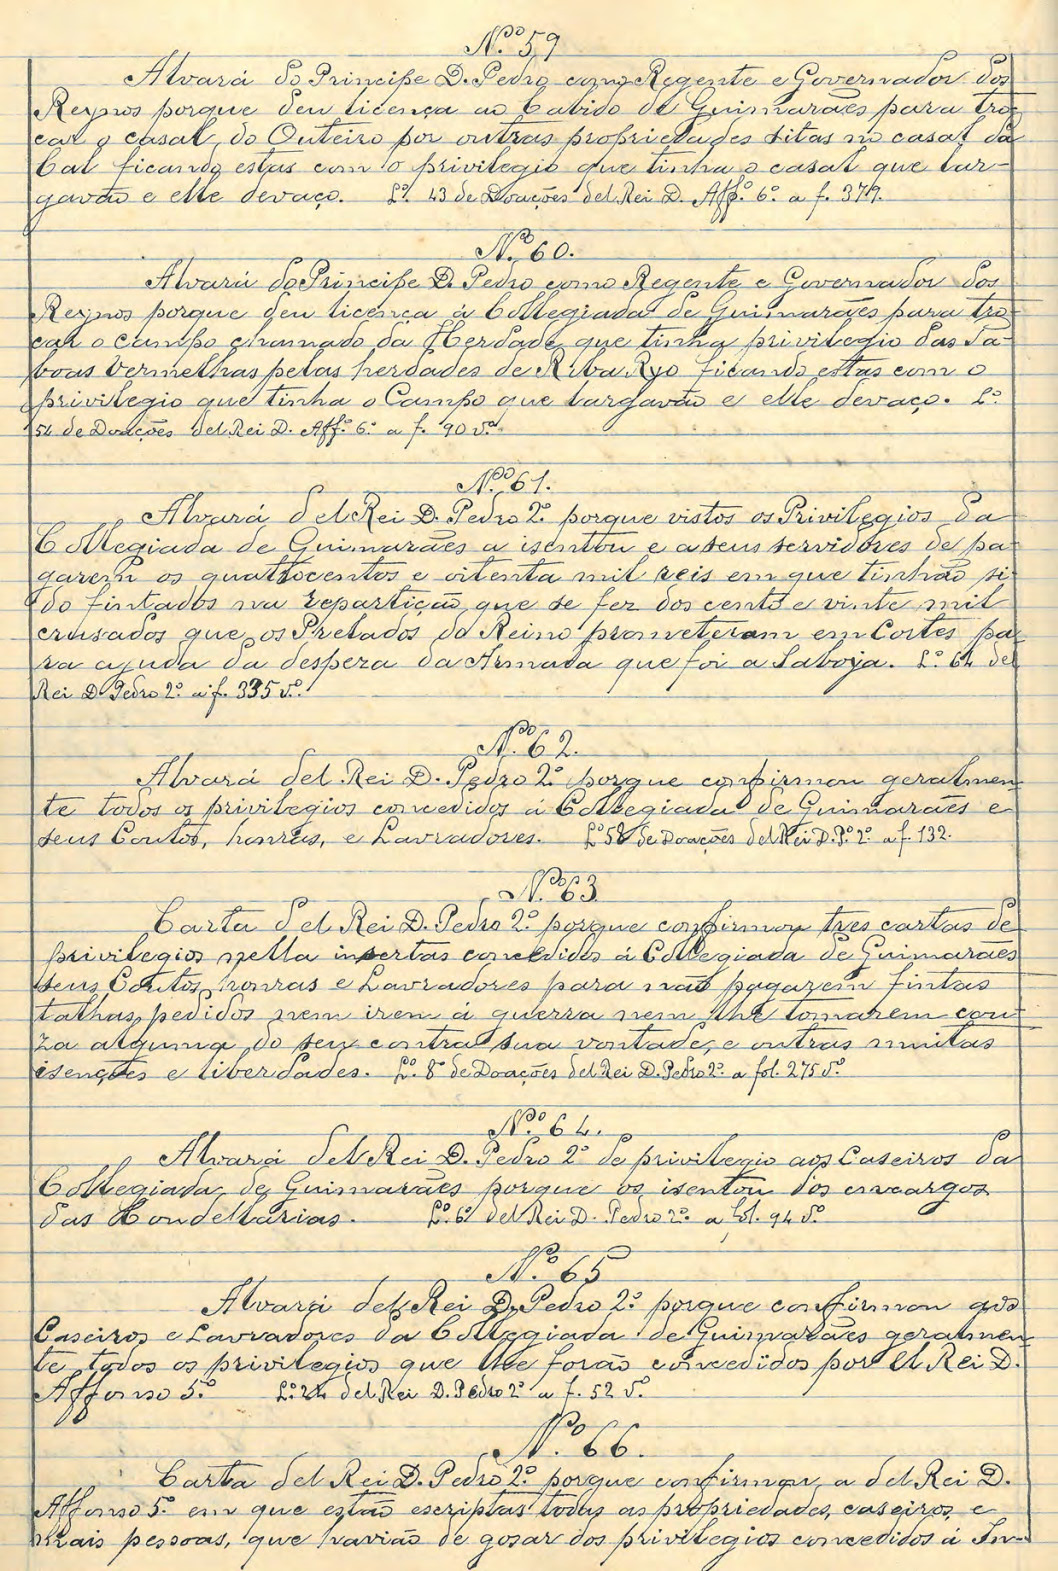 Nº 59
Alvará do Principe D. Pedro como Regente e Governador dos
Reynos porque deu licença ao Cabido de Guimarães para tro-
car o casal do Outeiro por outras propriedades sitas no casal da
Cal ficando estas com o privilegio que tinha o casal que lar-
gavão e elle devaço. Lº. 43 de Doações del Rei D. Affº. 6º. a f. 379.
Nº 60.
Alvará do Principe D. Pedro como Regente e Governador dos
Reynos porque deu licença á Collegiada de Guimarães para tro-
car o campo chamado da Herdade que tinha privilegio das Ta-
boas Vermelhas pelas herdades de Riba Ryo ficando estas com o
privilegio que tinha o Campo que largavão e elle devaço. Lº.
54 de Doações del Rei D. Affº. 6º. a f. 90 vº.
Nº 61.
Alvará del Rei D. Pedro 2º. porque vistos os Privilegios da
Collegiada de Guimarães a isentou e a seus servidores de pa-
garem os quattocentos e oitenta mil reis em que tinhão si-
do fintados na repartição que se fez dos cento e vinte mil
crusados que os Prelados do Reino prometeram em Cortes pa-
ra ajuda da despeza da Armada que foi a Saboja. Lº. 64 del
Rei D. Pedro 2º. a f. 335 vº.
Nº 62.
Alvará del Rei D. Pedro 2º. porque confirmou geralmen-
te todos os privilegios concedidos á Collegiada de Guimarães e
seus Coutos, honras, e Lavradores. Lº 58 de Doações del Rei D. Pº. 2º. a f. 132.
Nº 63
Carta del Rei D. Pedro 2º. porque confirmou tres cartas de
privilegios nella insertas concedidos á Collegiada de Guimarães
seus Coutos, honras e Lavradores para não pagarem fintas
talhas, pedidos nem irem á guerra nem lhe tomarem cou-
za alguma do seu contra sua vontade, e outras muitas
isenções e liberdades. Lº. 8º de Doações del Rei D. Pedro 2º. a fol. 275 vº
Nº 64.
Alvará del Rei D. Pedro 2º de privilegio aos Caseiros da
Collegiada de Guimarães porque os isentou dos encargos
das Coudellarias. Lº. 6º del Rei D. Pedro 2º. a fol. 94 vº
Nº 65
Alvará del Rei D. Pedro 2º. porque confirmou aos
Caseiros e Lavradores da Collegiada de Guimarães geralmen-
te todos os privilegios que lhe forão concedidos por el Rei D.
Affonso 5º. Lº. 24 del Rei D. Pedro 2º a f. 52 vº.
Nº 66.
Carta del Rei D. Pedro 2º. porque confirmou a del Rei D.
Affonso 5º. em que estão escriptas todas as propriedades, caseiros, e
mais pessoas, que havião de gosar dos privilegios concedidos á In-